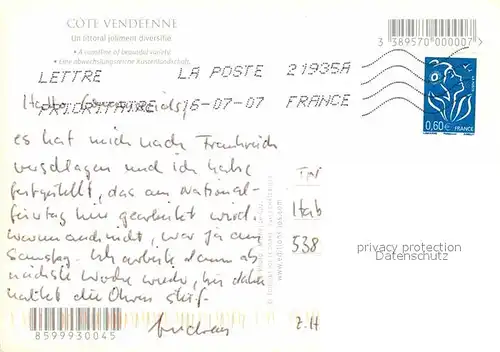 CÔTE VENDÉENNE
Un littoral joliment diversifié
• A coastline of beautiful variety.
• Eine abwechslungsreiche Küstenlandschaft.
3 389570 000007
LETTRE LA POSTE 21935A
PRIORITAIRE 16-07-07 FRANCE
0,60€ FRANCE
Hallo
es hat mich nach Frankreich
verschlagen und ich habe
festgestellt, das am National-
feiertag hier gearbeitet wird.
Warum auch nicht, war ja am
Samstag. Ich arbeite dann ab
nächste Woche wieder, bis dahin
haltet die Ohren steif.
Andreas
538
z.H
privacy protection
Datenschutz
8599930045